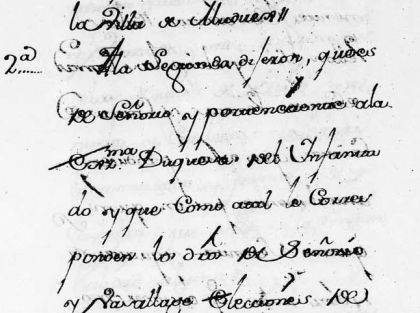 la Villa de
2.ª A la Segunda dixeron, que es
de Señorio y perteneciente a la
Exma Duquesa del Infanta
do y que como a tal le corres
ponden los dros de Señorio
y Vasallage Elecciones de